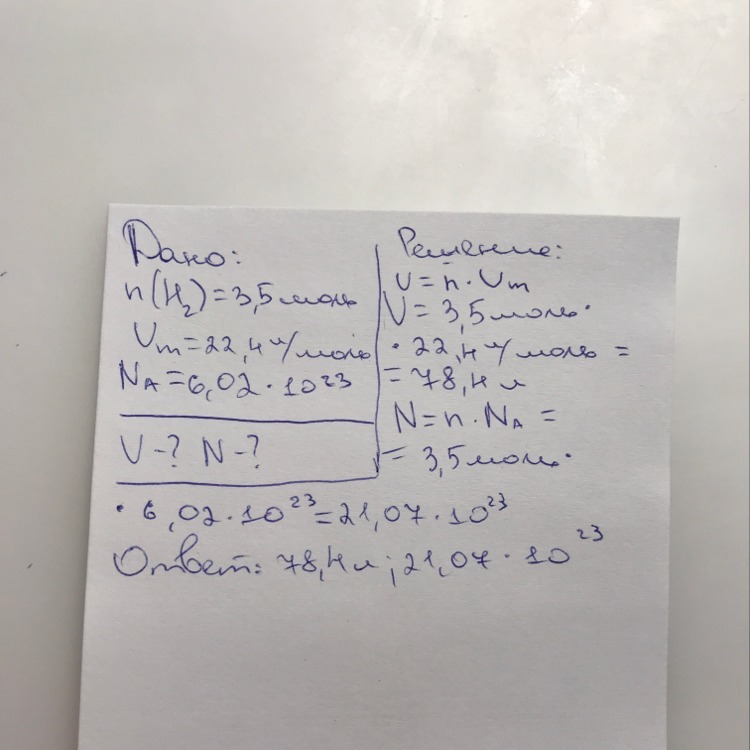 Дано:
n(H₂) = 3,5 моль
Vm = 22,4 л/моль
NA = 6,02 · 10²³
V - ? N - ?
Решение:
V = n · Vm
V = 3,5 моль ·
· 22,4 л/моль =
= 78,4 л
N = n · NA =
= 3,5 моль ·
· 6,02 · 10²³ = 21,07 · 10²³
Ответ: 78,4 л; 21,07 · 10²³